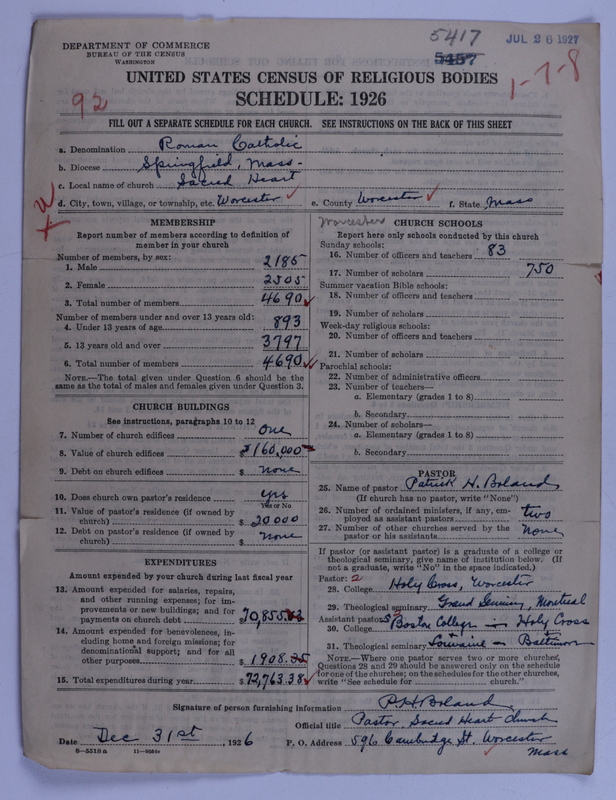 DEPARTMENT OF COMMERCE
BUREAU OF THE CENSUS
WASHINGTON
5417
5457
JUL 26 1927
1-7-8
92
UNITED STATES CENSUS OF RELIGIOUS BODIES
SCHEDULE: 1926
FILL OUT A SEPARATE SCHEDULE FOR EACH CHURCH. SEE INSTRUCTIONS ON THE BACK OF THIS SHEET
a. Denomination Roman Catholic
b. Diocese Springfield, Mass-
c. Local name of church Sacred Heart
d. City, town, village, or township, etc. Worcester e. County Worcester f. State Mass
MEMBERSHIP
Report number of members according to definition of member in your church
Number of members, by sex:
1. Male 2185
2. Female 2505
3. Total number of members 4690
Number of members under and over 13 years old:
4. Under 13 years of age 893
5. 13 years old and over 3797
6. Total number of members 4690
NOTE.—The total given under Question 6 should be the same as the total of males and females given under Question 3.
CHURCH BUILDINGS
See instructions, paragraphs 10 to 12
7. Number of church edifices One
8. Value of church edifices $160,000
9. Debt on church edifices $ none
10. Does church own pastor's residence yes
Yes or No
11. Value of pastor's residence (if owned by church) $20000
12. Debt on pastor's residence (if owned by church) $ none
EXPENDITURES
Amount expended by your church during last fiscal year
13. Amount expended for salaries, repairs, and other running expenses; for improvements or new buildings; and for payments on church debt $70,855.
14. Amount expended for benevolences, including home and foreign missions; for denominational support; and for all other purposes $1908.
15. Total expenditures during year $72,763.38
Worcester
CHURCH SCHOOLS
Report here only schools conducted by this church
Sunday schools:
16. Number of officers and teachers 83
17. Number of scholars 750
Summer vacation Bible schools:
18. Number of officers and teachers
19. Number of scholars
Week-day religious schools:
20. Number of officers and teachers
21. Number of scholars
Parochial schools:
22. Number of administrative officers
23. Number of teachers—
a. Elementary (grades 1 to 8)
b. Secondary
24. Number of scholars—
a. Elementary (grades 1 to 8)
b. Secondary
PASTOR
25. Name of pastor Patrick H. Boland
(If church has no pastor, write "None")
26. Number of ordained ministers, if any, employed as assistant pastors two
27. Number of other churches served by the pastor or his assistants none
If pastor (or assistant pastor) is a graduate of a college or theological seminary, give name of institution below. (If not a graduate, write "No" in the space indicated.)
Pastor: 2
28. College Holy Cross, Worcester
29. Theological seminary Grand Seminary, Montreal
Assistant pastor:
30. College Boston College - Holy Cross
31. Theological seminary Louvaine - Baltimore
NOTE.—Where one pastor serves two or more churches, Questions 28 and 29 should be answered only on the schedule for one of the churches; on the schedules for the other churches, write "See schedule for church."
Signature of person furnishing information P.H. Boland
Official title Pastor Sacred Heart Church
Date Dec 31st, 1926 P. O. Address 596 Cambridge St. Worcester
Mass